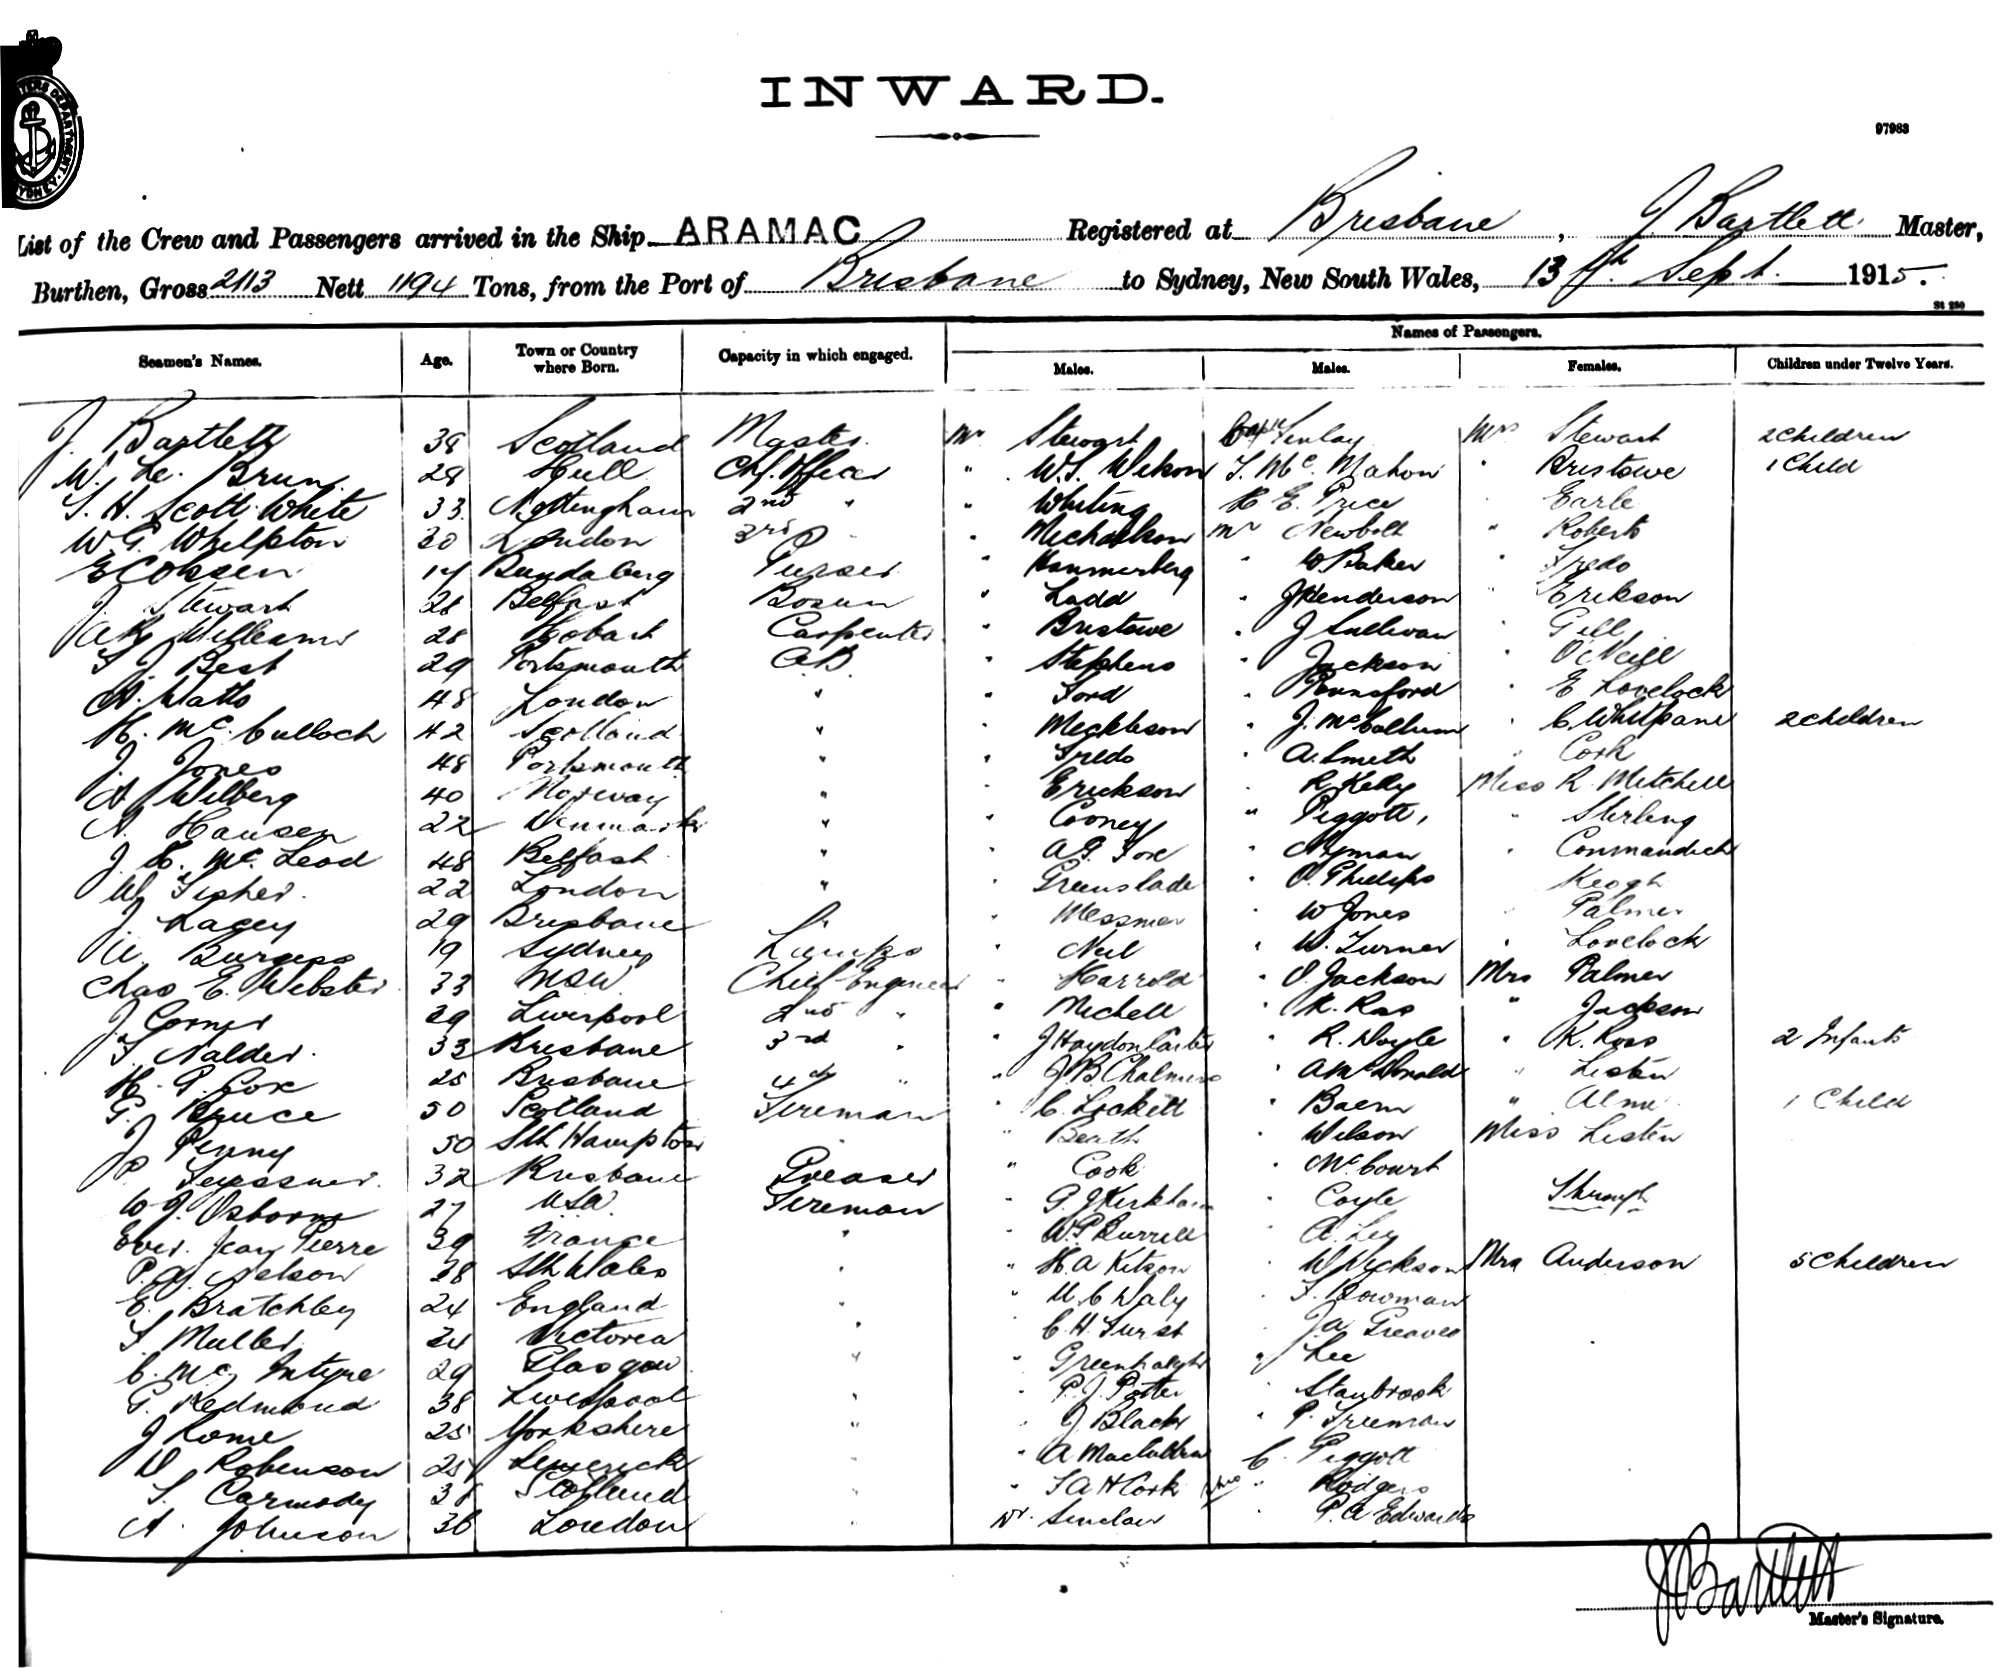 INWARD.
97983
List of the Crew and Passengers arrived in the Ship ARAMAC Registered at Brisbane, J Bartlett Master,
Burthen, Gross 2113 Nett 1194 Tons, from the Port of Brisbane to Sydney, New South Wales, 13th Sept. 1915.
St 250
Names of Passengers.
Seamen's Names. Age. Town or Country where Born. Capacity in which engaged. Males. Males. Females. Children under Twelve Years.
J. Bartlett 38 Scotland Master Mr Stewart Capt Finlay Mrs Stewart 2 Children
W. Le. Brun 28 Hull Chf. Officer " W.S. Wilson T. Mc. Mahon " Bristowe 1 Child
S. H. Scott White 33 Nottingham 2nd " " Whiting H E. Price " Earle
W G. Whelpton 30 London 3rd " Michaelson Mr Newbolt " Roberts
17 Bundaberg Purser " Hammerberg " W. Baker " Fredo
J. Stewart 28 Belfast Bosun " Ladd " J Henderson " Erikson
Williams 28 Hobart Carpenter " Bristowe " J Sullivan " Gill
S J Best 29 Portsmouth A.B. " Stephens " Jackson " O'Neill
A. Watts 48 London " " Ford " Ponsford " E Lovelock
H. Mc. Culloch 42 Scotland " " " J. McCallum " C. 2 Children
J. Jones 48 Portsmouth " " Fredo " A. Smith " Cork
A Wilberg 40 Norway " " Erickson " R Kelly Miss R. Mitchell
A. Hansen 22 Denmark " " Cooney " Piggott, " Stirling
J. K. Mc. Leod 48 Belfast " " A G Fox " Nyman " Commandich
W Fisher. 22 London " " Greenslade " O. Phillips Keogh
J. Lacey 29 Brisbane " " Messmer W Jones " Palmer
W. Burgess 19 Sydney Lamps " Neil " W. Turner " Lovelock
Chas E. Webster 33 NSW Chief Engineer " Harrold " J. Jackson Mrs Palmer
J. Corner 29 Liverpool 2nd " " Michell " K. Ross " Jackson
T. Nalder. 33 Brisbane 3rd " " J Haydon Carter " R. Doyle " K. Ross 2 Infants
H. P. Cox 25 Brisbane 4th " " J. B Chalmers " A McDonald " Listen
G. Bruce 50 Scotland Fireman " C. Lockett " Baern " Alme 1 Child
J Penny 50 Sth Hampton " Beath " Wilson Miss Listen
P 32 Brisbane Greaser " Cook " McCourt
W J. Osborne 27 USA. Fireman " G. J Kirkham " Coyle Through
Jean Pierre 39 France " " W. P Burrell " A. Ley
P. A. Nelson 38 Sth Wales " " H. A Kitson " W Dickson Mrs Anderson 5 Children
E. Bratchley 24 England " " M C Daly " F. Bowman
F. Muller. 21 Victoria " " C. H. Furst " J A Greaves
C. Mc Intyre 29 Glasgow " " Greenhalgh " Lee
G. Redmond 38 Liverpool " " P. J. Potter " Stanbrook
J Rome 25 Yorkshire " " J Black " P. Freeman
D. Robinson 25 Limerick " " A MacCallum C. Piggott
T. Carmody 38 Scotland " " F A H Cork " Rodgers
A. Johnson 36 London " Dr. Sinclair " P. A Edwards
J Bartlett
Master's Signature.